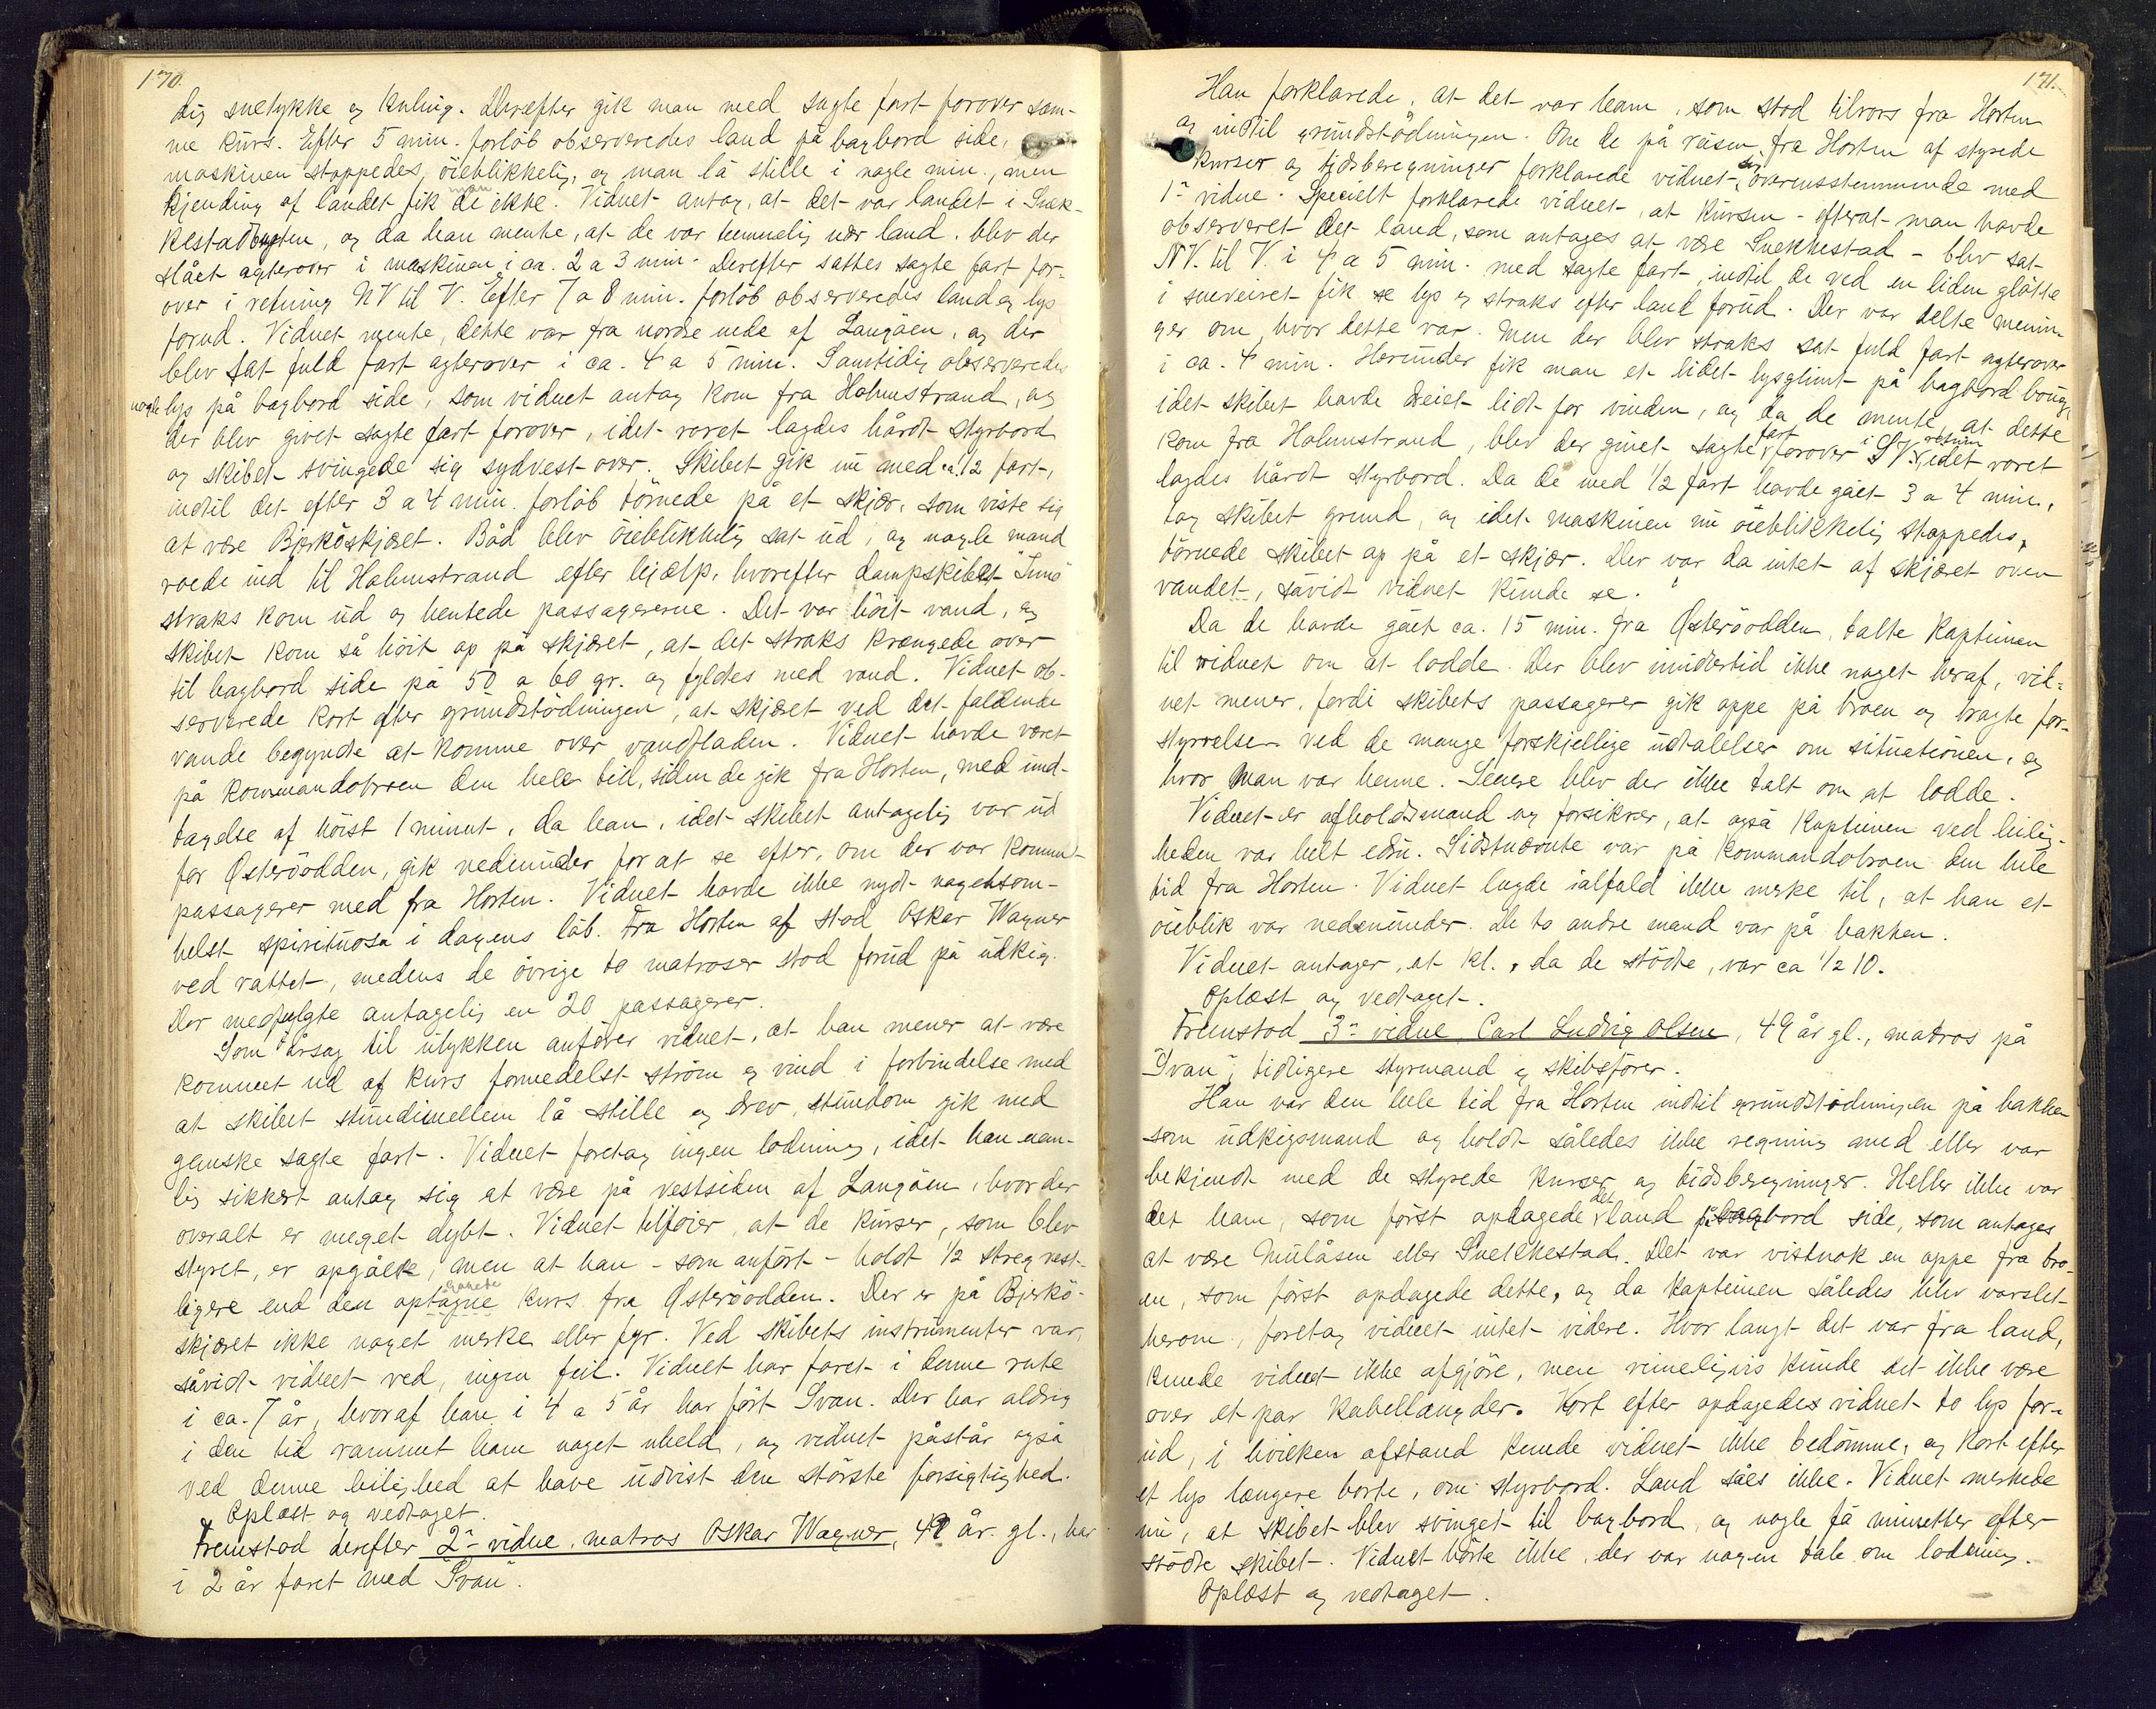 170.
dig snetykke og kuling. Derefter gik man med sagte fart forover sam-
me kurs. Efter 5 min. forløb observeredes land på bagbord side,
maskinen stoppedes øieblikkelig, og man lå stille i nogle min., men
man
kjending af landet fik de ikke. Vidnet antog, at det var landet i Snek-
kestadbugten, og da han mente, at de var temmelig nær land, blev der
slået agterover i maskinen i ca. 2 a 3 min. Derefter sattes sagte fart for-
over i retning NV til V. Efter 7 a 8 min. forløb observeredes land og lys
forud. Vidnet mente, dette var fra nordre ende af Langøen, og der
blev sat fuld fart agterover i ca. 4 a 5 min. Samtidig observeredes
nogle lys på bagbord side, som vidnet antog kom fra Holmestrand, og
der blev givet sagte fart forover, idet roret lagdes hårdt styrbord
og skibet svingede sig sydvest over. Skibet gik nu med ca. 1/2 fart,
indtil det efter 3 a 4 min. forløb tørnede på et skjær, som viste sig
at være Bjerköskjæret. Båd blev øieblikkelig sat ud, og nogle mand
roede ind til Holmestrand efter hjælp, hvorefter dampskibet "Juno"
straks kom ud og hentede passagererne. Det var høit vand, og
skibet kom så høit op på skjæret, at det straks krængede over
til bagbord side på 50 a 60 gr. og fyldes med vand. Vidnet ob-
serverede kort efter grundstødningen, at skjæret ved det faldende
vande begyndte at komme over vandfladen. Vidnet havde været
på kommandobroen den hele tid, siden de gik fra Horten, med und-
tagelse af høist 1 minut, da han, idet skibet antagelig var ud
for Østerøodden, gik nedenunder for at se efter, om der var kommet
passagerer med fra Horten. Vidnet havde ikke nydt nogetsom-
helst spirituosa i dagens løb. Fra Horten af stod Oskar Wagner
ved rattet, medens de øvrige to matroser stod forud på udkig.
Der medfulgte antagelig en 20 passagerer.
Som årsag til ulykken anfører vidnet, at han mener at være
kommet ud af kurs formedelst strøm og vind i forbindelse med
at skibet stundimellem lå stille og drev, stundom gik med
ganske sagte fart. Vidnet foretog ingen lodning, idet han nem-
lig sikkert antog sig at være på vestsiden af Langøen, hvor der
overalt er meget dybt. Vidnet tilføier, at de kurser, som blev
styret, er opgåede, men at han - som anført - holdt 1/2 streg vest-
ligere end den optagne kurs fra Østerøodden. Der er på Bjerkö-
skjæret ikke noget merke eller fyr. Ved skibets instrumenter var,
såvidt vidnet ved, ingen feil. Vidnet har faret i denne rute
i ca. 7 år, hvoraf han i 4 a 5 år har ført Svan. Der har aldrig
i den tid rammet ham noget uheld, og vidnet påstår også
ved denne leilighed at have udvist den største forsigtighed.
Oplæst og vedtaget.
Fremstod derefter 2- vidne, matros Oskar Wagner, 49 år gl., har
i 2 år faret med Svan.
171.
Han forklarede, at det var ham, som stod tilrors fra Horten
og indtil grundstødningen. Om de på reisen fra Horten af styrede
kurser og tidsberegninger forklarede vidnet sig overensstemmende med
1- vidne. Specielt forklarede vidnet, at kursen - efterat man havde
observeret det land, som antages at være Snekkestad - blev sat
NV. til V. i 4 a 5 min. med sagte fart, indtil de ved en liden gløtte
i sneveiret fik se lys og straks efter land forud. Der var delte menin-
ger om, hvor dette var. Men der blev straks sat fuld fart agterover
i ca. 4 min. Herunder fik man et lidet lysglimt på bagbord boug,
idet skibet havde dreiet lidt for vinden, og da de mente, at dette
kom fra Holmstrand, blev der givet sagte fart forover i SV. retning idet roret
lagdes hårdt styrbord. Da de med 1/2 fart havde gået 3 a 4 min.,
tog skibet grund, og idet maskinen nu øieblikkelig stoppedes,
tørnede skibet op på et skjær. Der var da intet af skjæret oven
vandet, såvidt vidnet kunde se.
Da de havde gået ca. 15 min. fra Østerøodden, talte kapteinen
til vidnet om at lodde. Der blev imidlertid ikke noget heraf, vid-
net mener, fordi skibets passagerer gik oppe på broen og bragte for-
styrrelser ved de mange forskjellige udtalelser om situationen, og
hvor man var henne. Senere blev der ikke talt om at lodde.
Vidnet er afholdsmand og forsikrer, at også kapteinen ved leilig-
heden var helt edru. Sidstnævnte var på kommandobroen den hele
tid fra Horten. Vidnet lagde ialfald ikke merke til, at han et
øieblik var nedenunder. De to andre mand var på bakken.
Vidnet antager, at kl., da de stødte, var ca 1/2 10.
Oplæst og vedtaget.
Fremstod 3- vidne Carl Ludvig Olsen, 49 år gl., matros på
"Svan", tidligere styrmand og skibsfører.
Han var den hele tid fra Horten indtil grundstødningen på bakken
som udkigsmand og holdt således ikke regning med eller var
bekjendt med de styrede kurser og tidsberegninger. Heller ikke var
det ham, som først opdagede det land på bagbord side, som antages
at være Mulåsen eller Snekkestad. Det var vistnok en oppe fra bro-
en, som først opdagede dette, og da kapteinen således blev varslet
herom, foretog vidnet intet videre. Hvor langt det var fra land,
kunde vidnet ikke afgjøre, men rimeligvis kunde det ikke være
over et par kabellængder. Kort efter opdagedes vidnet to lys for-
ud, i hvilken afstand kunde vidnet ikke bedømme, og kort efter
et lys længere borte, om styrbord. Land såes ikke. Vidnet merkede
nu, at skibet blev svinget til bagbord, og nogle få minutter efter
stødte skibet. Vidnet hørte ikke, der var nogen tale om lodning.
Oplæst og vedtaget.